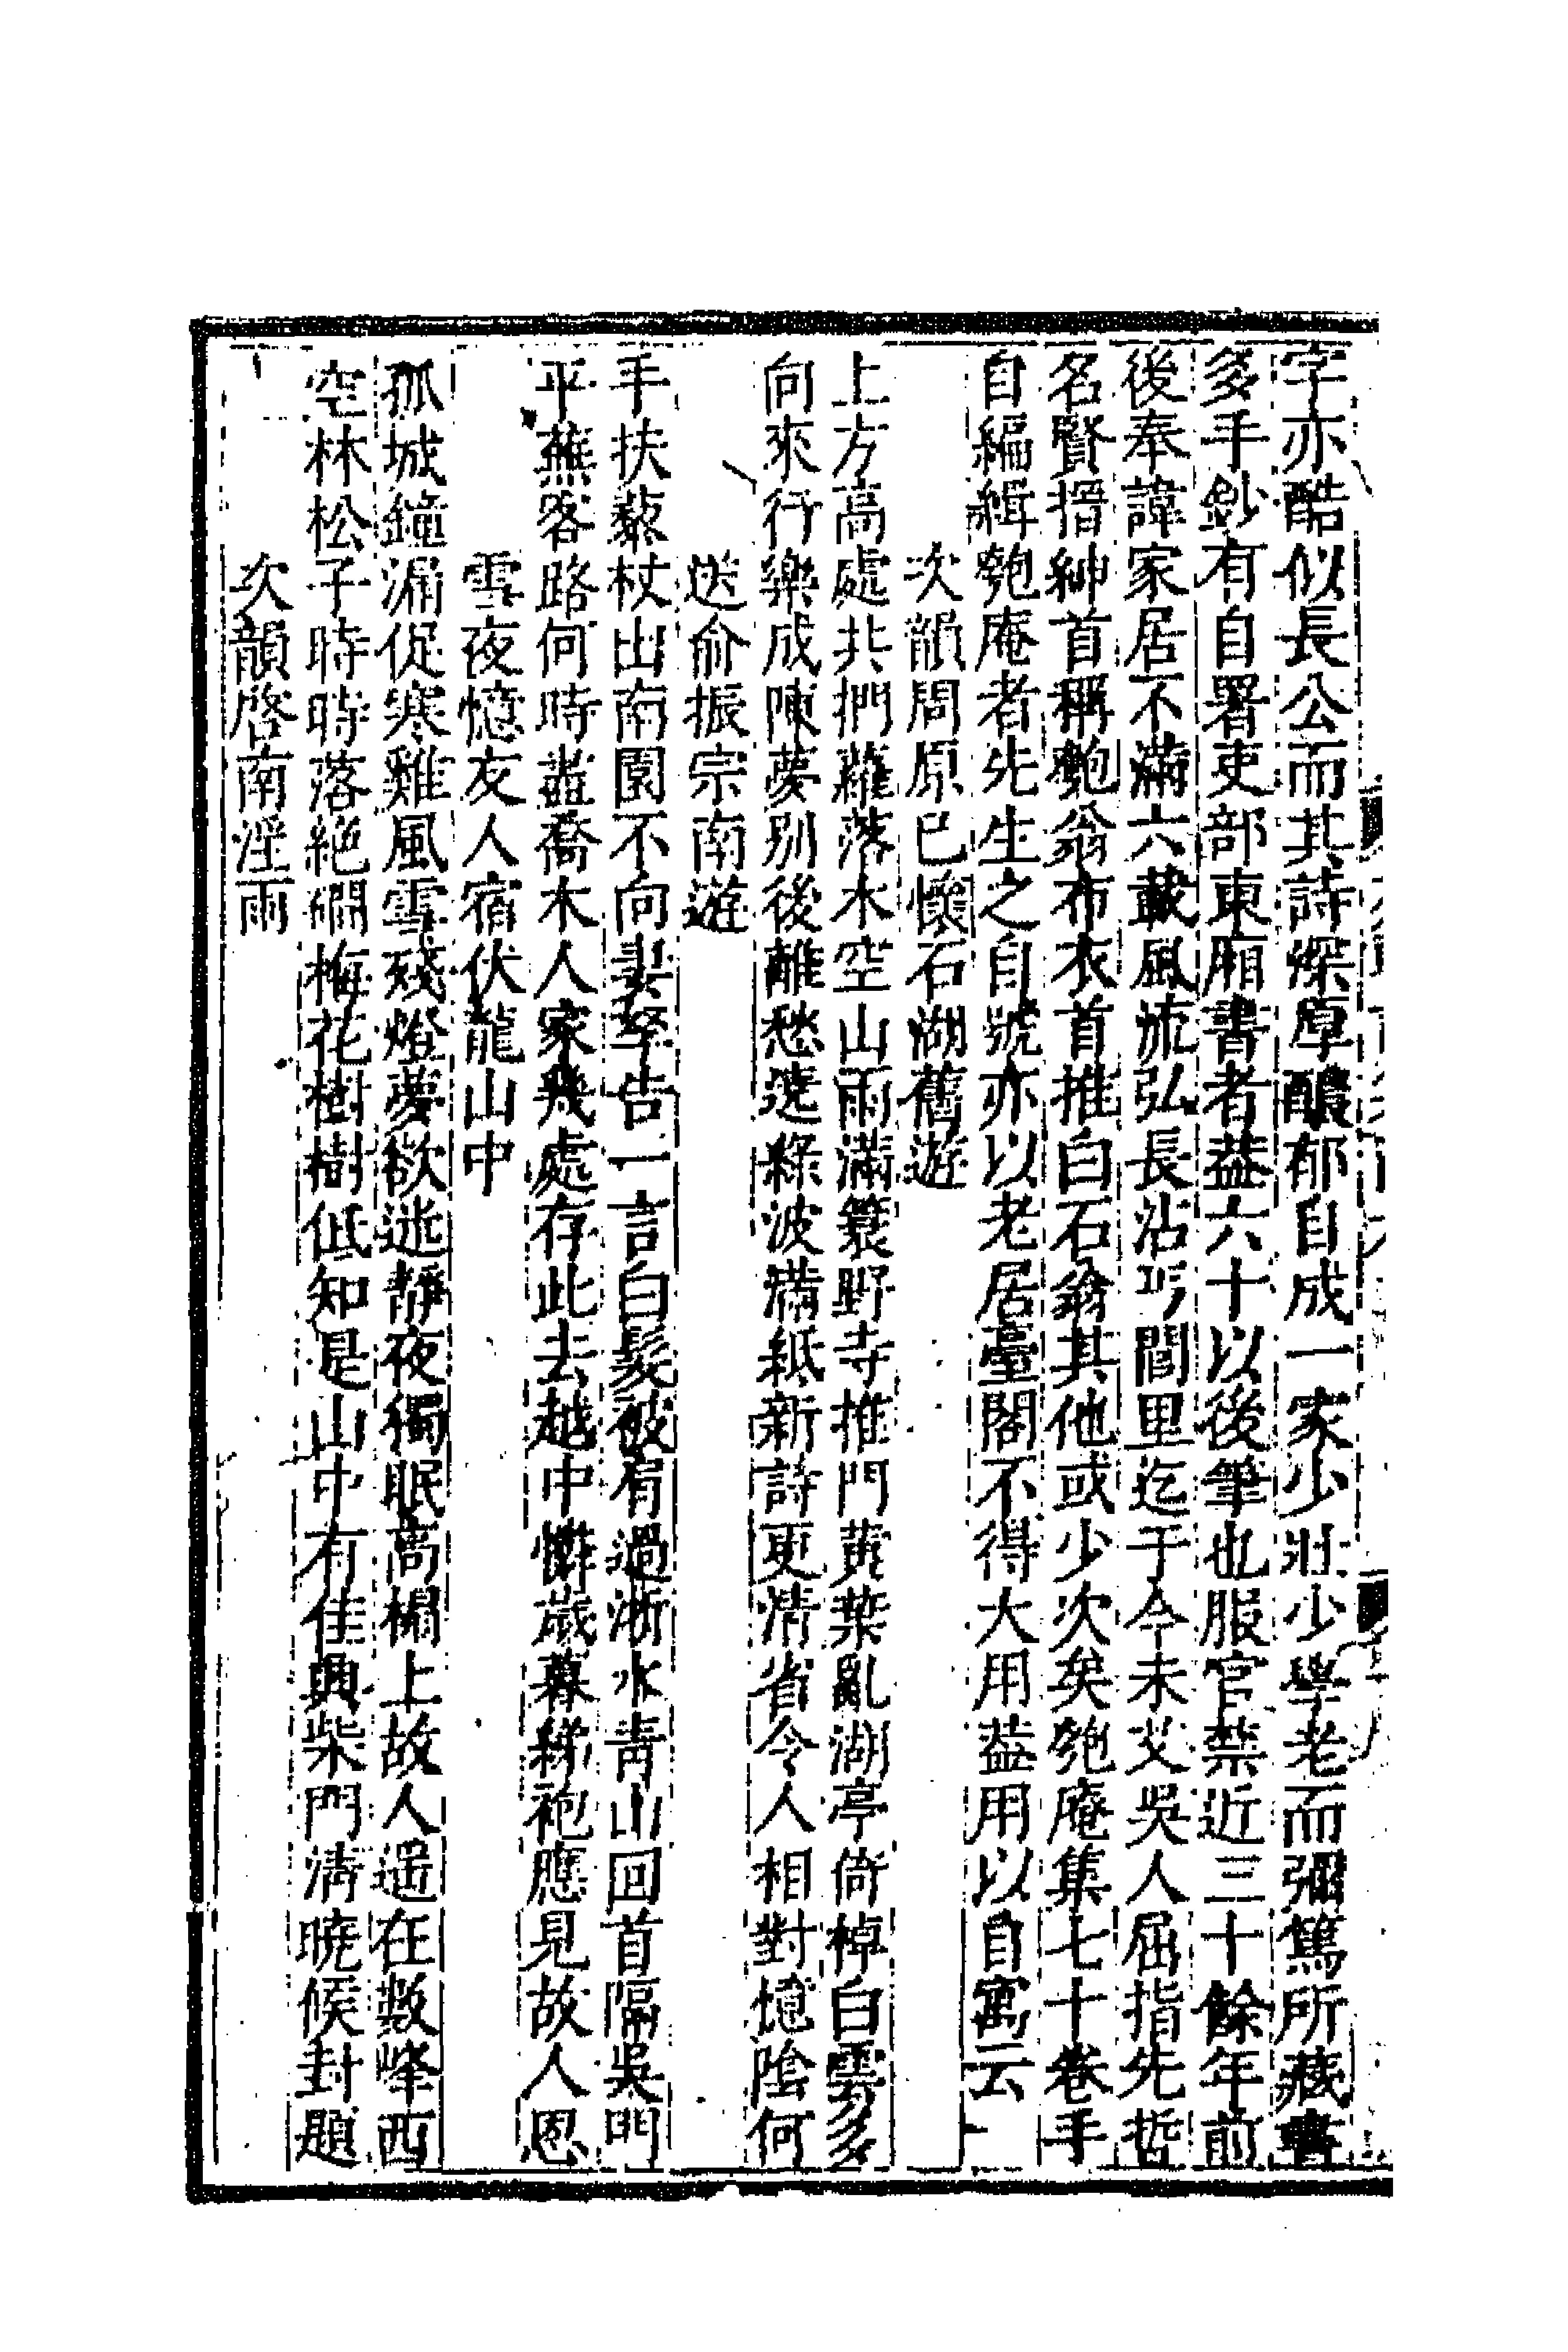 字亦酷似長公而其詩深厚醲郁自成一家少壯少學老而彌篤所藏書
多手鈔有自署吏部東廂書者葢六十以後筆也服官禁近三十餘年前
後奉諱家居不滿六載風流弘長沾丐閭里迄于今未艾吳人屈指先哲
名賢搢紳首稱匏翁布衣首推白石翁其他或少次矣匏庵集七十卷手
自編緝匏庵者先生之自號亦以老居臺閣不得大用葢用以自寓云
次韻周原已懷石湖舊遊
上方高處共捫蘿落木空山雨滿簑野寺推門黄葉亂湖亭倚棹白雲多
向來行樂成陳夢别後離愁遶綠波滿紙新詩更清省令人相對憶陰何
送俞振宗南遊
手扶藜杖出南園不向妻孥告一言白髮被肩過浙水青山回首隔吳門
平蕪客路何時盡喬木人家幾處存此去越中憐歲暮綈袍應見故人恩
雪夜憶友人宿伏龍山中
孤城鐘漏促寒雞風雪殘燈夢欲迷靜夜獨眠高榻上故人遥在數峰西
空林松子時時落絶磵梅花樹樹低知是山中有佳興柴門清曉候封題
次韻啓南淫雨